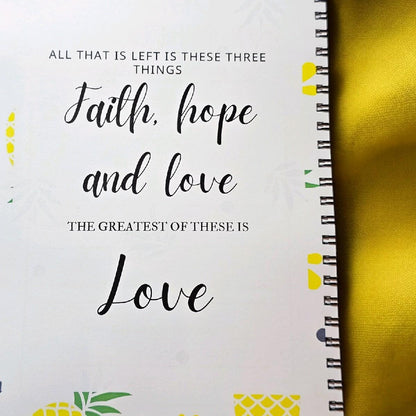 ALL THAT IS LEFT IS THESE THREE
THINGS
Faith, hope
and love
THE GREATEST OF THESE IS
Love